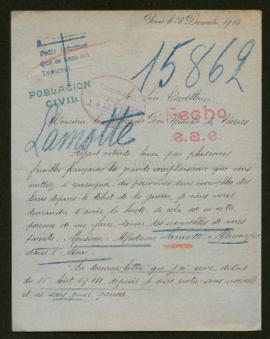 Paris le 18 Décembre 1914
Pedir informes
15862
POBLACION
CIVIL
A Son Excellence
Monsieur
Lamotte
Fecho
e.a.e.
Ayant entendu dire par plusieurs
familles françaises la grande complaisance que vous
mettez à renseigner des personnes sans nouvelles des
leurs depuis le début de la guerre, je viens vous
demander d'avoir la bonté, si cela est en votre
pouvoir de me faire avoir des nouvelles de mes
parents. Monsieur & Madame Lamotte à
dans l'Aisne.
La dernière lettre que j'ai reçue, datant
du 25 Août 1914, depuis je suis restée sans nouvelle
et ne sais que penser